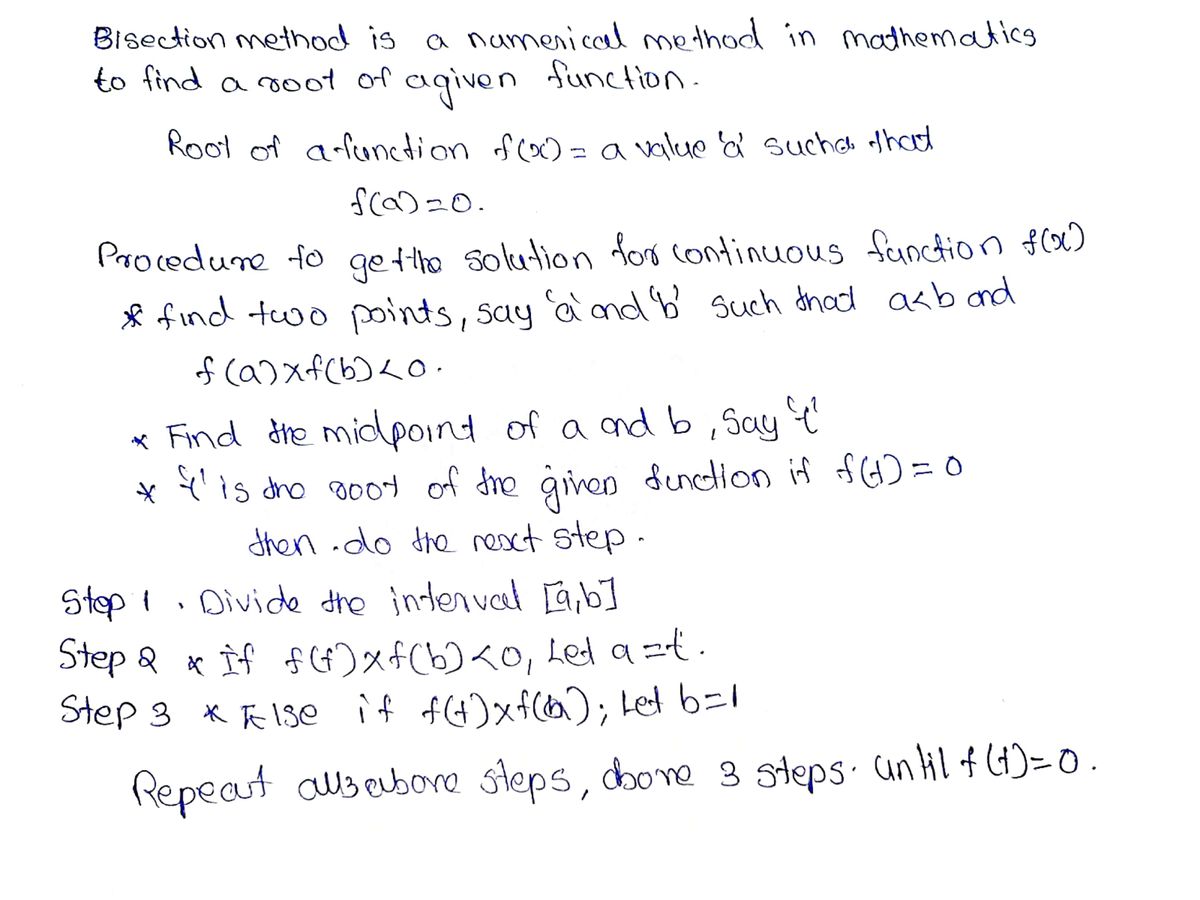 Bisection method is a numerical method in mathematics
to find a root of a given function.
Root of a function f(x) = a value 'a' such that
f(a) = 0.
Procedure to get the solution for continuous function f(x)
* find two points, say 'a' and 'b' such that a<b and
f(a)xf(b)<0.
* Find the midpoint of a and b, Say 't'
* 't' is the root of the given function if f(t) = 0
then . do the next step.
Step 1 . Divide the interval [a,b]
Step 2 * If f(t)xf(b)<0, Let a=t.
Step 3 * Else if f(t)xf(a); Let b=1
Repeat all 3 above steps, above 3 steps. until f(t)=0.